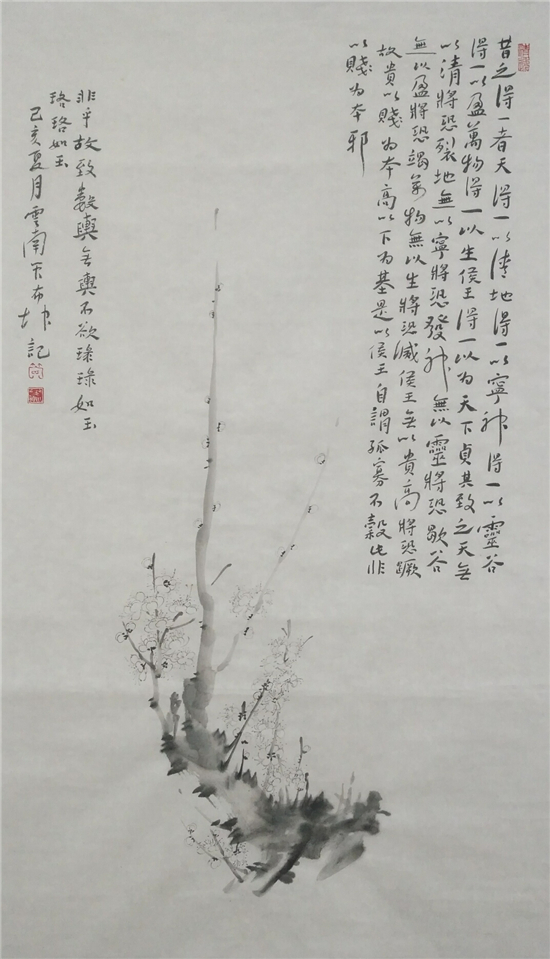 昔之得一者天得一以清地得一以寧神得一以靈谷
得一以盈萬物得一以生侯王得一以為天下貞其致之天無
以清將恐裂地無以寧將恐發神無以靈將恐歇谷
無以盈將恐竭萬物無以生將恐滅侯王无以貴高將恐蹶
故貴以賤為本高以下為基是以侯王自謂孤寡不穀此非
以賤為本邪
非乎故致數輿无輿不欲琭琭如玉
珞珞如玉
己亥夏月雲南布坤記